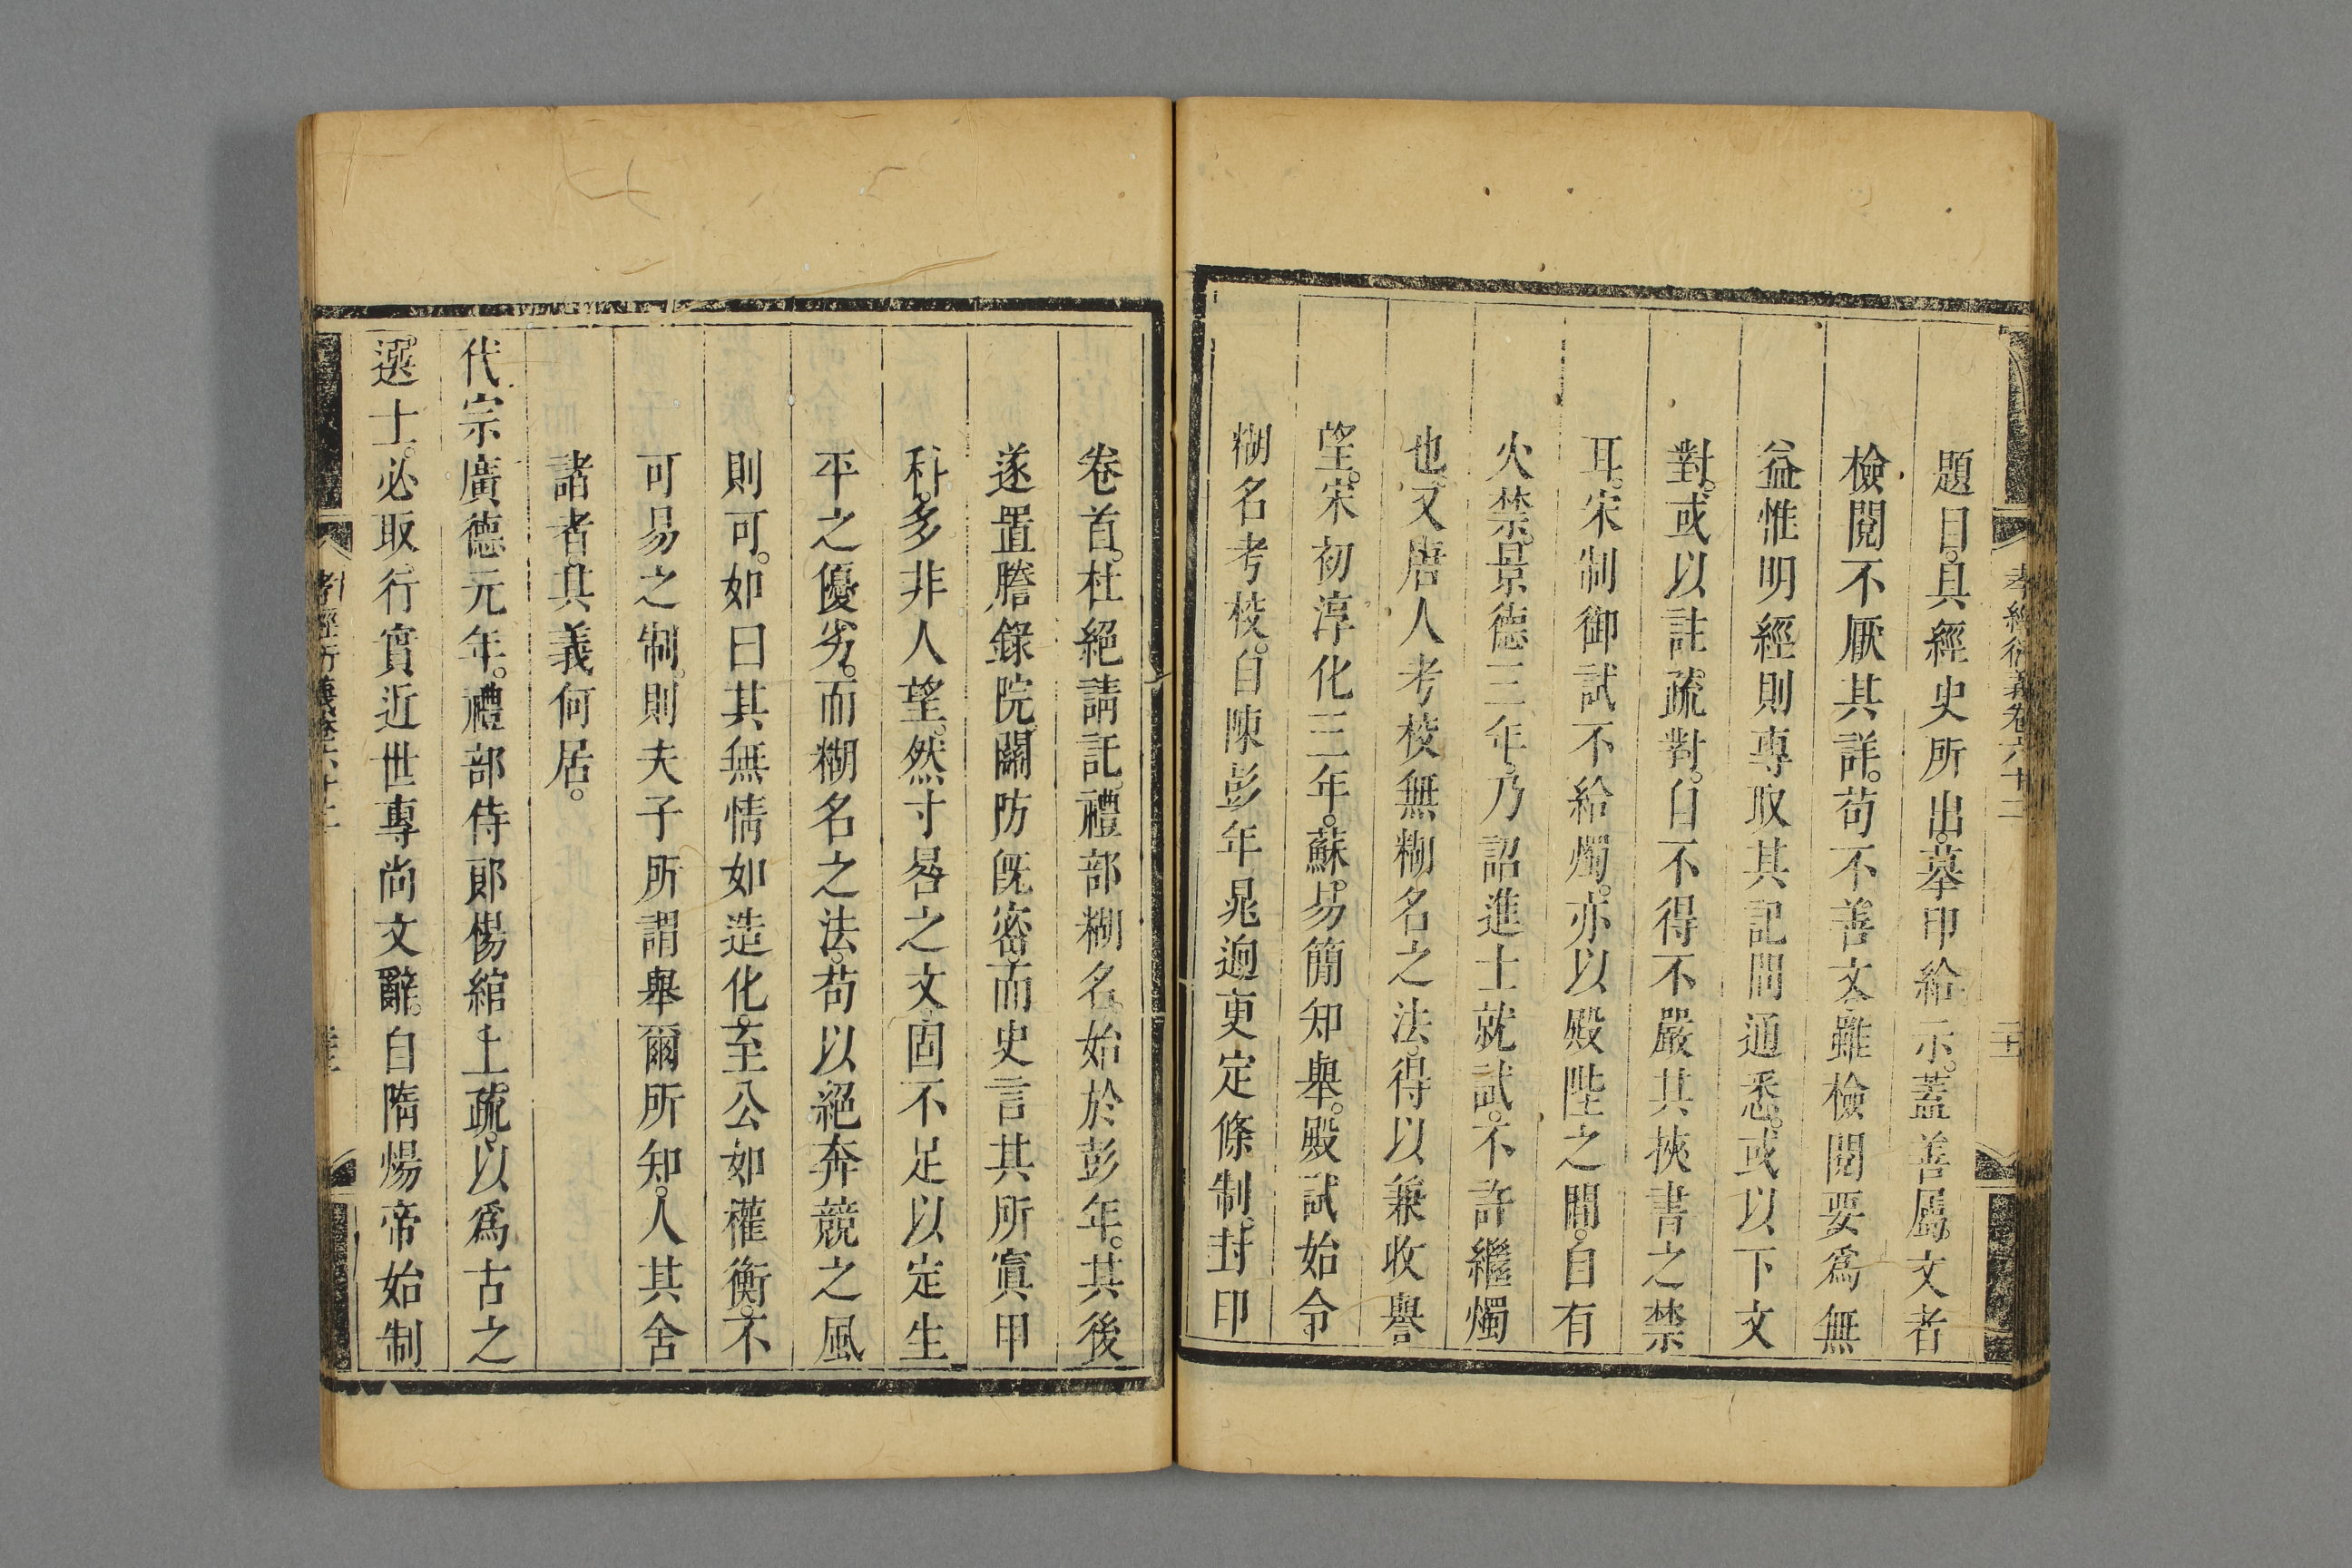 題目。具經史所出。摹印給示。蓋善屬文者
檢閱不厭其詳。苟不善文。雖檢閱要爲無
益。惟明經則專取其記問通悉。或以下文
對。或以註疏對。自不得不嚴其挾書之禁
耳。宋制御試不給燭。亦以殿陛之間。自有
火禁。景德三年。乃詔進士就試。不許繼燭
也。又唐人考校無糊名之法。得以兼收譽
望。宋初淳化三年。蘇易簡知舉。殿試始令
糊名考校。自陳彭年晁迥更定條制。封印
孝經衍義卷六十三
卷首。杜絕請託。禮部糊名。始於彭年。其後
遂置謄錄院。關防旣密。而史言其所寘甲
科。多非人望。然寸晷之文。固不足以定生
平之優劣。而糊名之法。苟以絕奔競之風
則可。如曰其無情如造化。至公如權衡。不
可易之制。則夫子所謂舉爾所知。人其舍
諸者。其義何居。
代宗廣德元年。禮部侍郞楊綰上疏。以爲古之
選士。必取行實近世專尚文辭。自隋煬帝始制